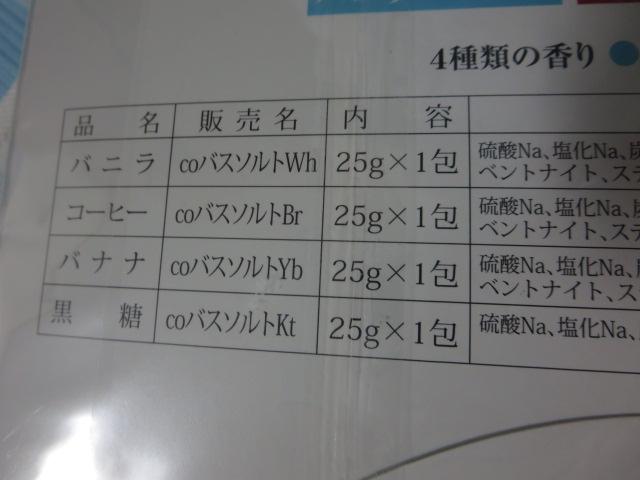 4種類の香り
品名 販売名 内容
バニラ coバスソルトWh 25g×1包 硫酸Na、塩化Na、炭
ベントナイト、ステ
コーヒー coバスソルトBr 25g×1包 硫酸Na、塩化Na、炭
ベントナイト、ステ
バナナ coバスソルトYb 25g×1包 硫酸Na、塩化Na、
ベントナイト、ス
黒糖 coバスソルトKt 25g×1包 硫酸Na、塩化Na、